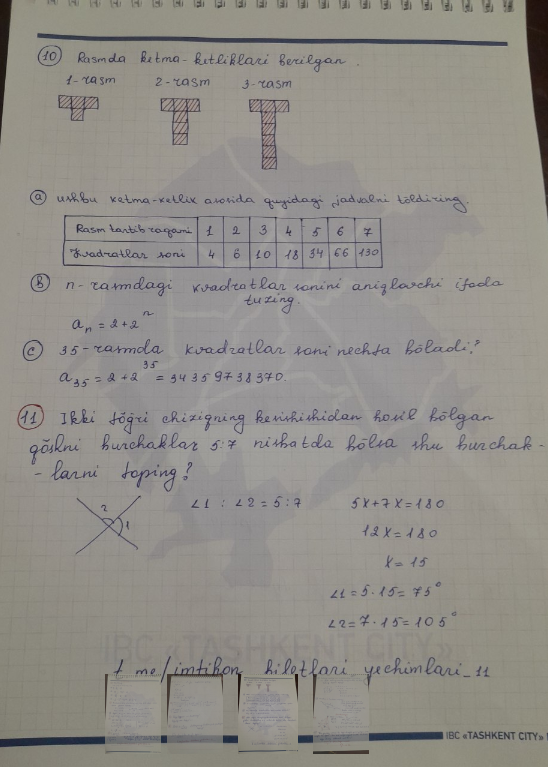 10 Rasmda ketma-ketliklari berilgan.
1-rasm 2-rasm 3-rasm
a ushbu ketma-ketlik asosida quyidagi jadvalni tõldiring.
Rasm tartib raqami 1 2 3 4 5 6 7
Kvadratlar soni 4 6 10 18 34 66 130
b n-rasmdagi kvadratlar sonini aniqlovchi ifoda
tuzing.
aₙ = 2+2ⁿ
c 35-rasmda kvadratlar soni nechta bõladi?
a₃₅ = 2+2³⁵ = 34359738370.
11 Ikki tõgri chiziqning kesishishidan hosil bõlgan
qõshni burchaklar 5:7 nisbatda bõlsa shu burchak-
-larni toping?
2 1
∠1 : ∠2 = 5:7 5x+7x=180
12x=180
x=15
∠1=5·15=75°
∠2=7·15=105°
IBC «TASHKENT CITY»
t me/imtihon biletlari yechimlari_11
IBC «TASHKENT CITY»